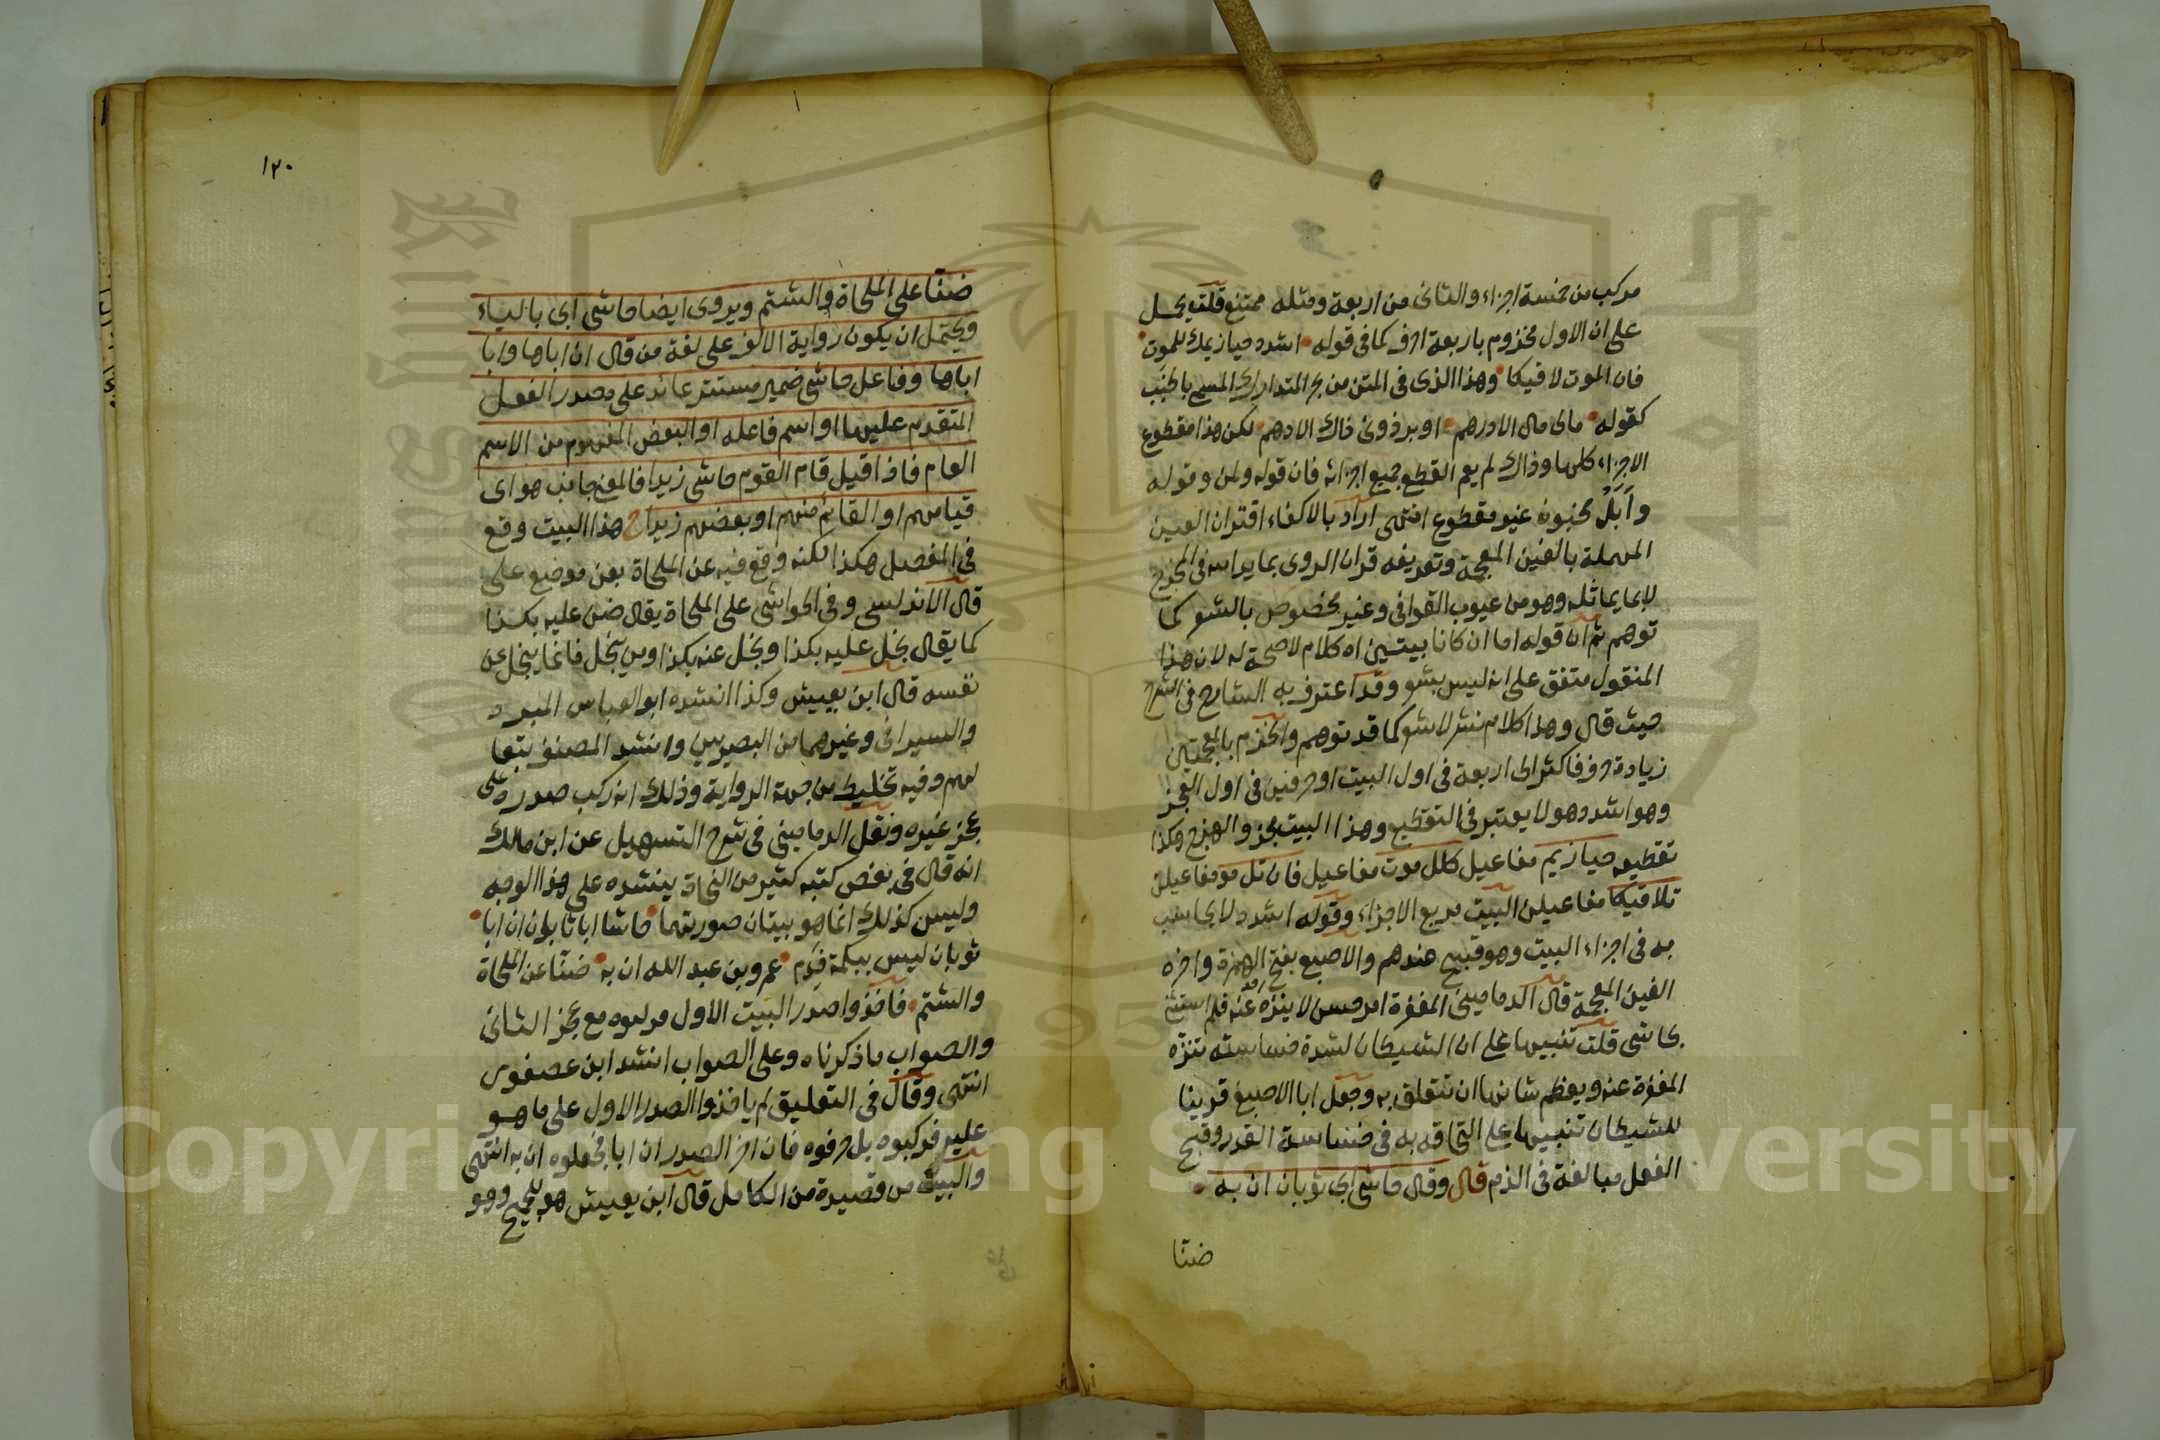 مركب من خمسة اجزاء والثانى من اربعة ومثله ممتنع قلت يحمل
على ان الاول مخزوم باربعة احرف كما فى قوله اشدد حيازيمك للموت
فان الموت لاقيكا وهذا الذى فى المتن من بحر المتدارك المسمى بالخبب
كقوله مالى مال الا درهم او برذونى ذاك الادهم لكن هذا مقطوع
الاجزاء كلها وذاك لم يعم القطع جميع اجزائه فان قوله ولمن وقوله
وابل مخبون غير مقطوع انتهى اراد بالاكفاء اقتران العين
المهملة بالغين المعجمة وتعريفه قران الروى بما يدانيه فى المخرج
لا بما يماثله وهو من عيوب القوافى وغير مخصوص بالشعر كما
توهم ثم ان قوله اما ان كانا بيتين اه كلام لا صحة له لان هذا
المنقول متفق على انه ليس بشعر وقد اعترف به الشارح فى الشرح
حيث قال وهذا كلام نثر لا شعر كما قد توهم والخزم بالمعجمتين
زيادة حرف فاكثر الى اربعة فى اول البيت او حرفين فى اول العجز
وهو اشدد هو لا يعتبر فى التقطيع وهذا البيت بحر والهزج هكذا
تقطيعه حيازيم مفاعيل كلل موت مفاعيل فان تل مو مفاعيلن
تلاقيكا مفاعيلن البيت مربع الاجزاء وقوله اشدد لا يحاسب
به فى اجزاء البيت وهو قبيح عندهم والاصبع بفتح الهمزة واخره
الغين المعجمة قال الدمامينى المغفرة امر حسن لا ينزه عنه فلم استثنى
بحاشى قلت تنبيها على ان الشيطان لشدة خساسته تنزه
المغفرة عنه ويعظم شانها ان تتعلق به وجعل ابا الاصبغ قرينا
للشيطان تنبيها على التحاقه به فى خساسة القدر وقبح
الفعل مبالغة فى الذم قال وقال حاشى ابى ثوبان ان به
ضنا
١٢٠
ضنا على الملحاة والشتم ويروى ايضا حاشى ابى بالياء
ويحتمل ان يكون رواية الالف على لغة من قال ان اباها وابا
اباها وفاعل حاشى ضمير مستتر عائد على مصدر الفعل
المتقدم عليها او اسم فاعله او البعض المفهوم من الاسم
العام فاذا قيل قام القوم حاشى زيدا فالمعنى جانب هو اى
قيامهم او القائم منهم او بعضهم زيدا ح هذا البيت وقع
فى المفصل هكذا لكنه وقع فيه عن الملحاة بعن موضع على
قال الاندلسى وفى الحواشى على الملحاة يقال ضن عليه بكذا
كما يقال بخل عليه بكذا وبخل عنه بكذا ومن يبخل فانما يبخل عن
نفسه قال ابن يعيش وكذا انشده ابو العباس المبرد
والسيرافى وغيرهما من البصريين وانشد المصنف تبعا
لهم وفيه تخليط من جهة الرواية وذلك انه ركب صدره على
عجز غيره ونقل الدمامينى فى شرح التسهيل عن ابن مالك
انه قال فى بعض كتبه كثير من النحاة ينشده على هذا الوجه
وليس كذلك انما هو بيتان صورتهما حاشا ابا ثابوان ان ابا
ثوبان ليس ببكمة فدم عمرو بن عبد الله ان به ضنا عن الملحاة
والشتم فاخذوا صدر البيت الاول مركبوه مع عجز الثانى
والصواب ما ذكرناه وعلى الصواب انشد ابن عصفور
انتهى وقال فى التعليق لم ياخذوا الصدر الاول على ما هو
عليه فركبوه بل حرفوه فان اخر الصدر ان ابا فجعلوه ان به انتهى
والبيت من قصيدة من الكامل قال ابن يعيش هو للجميح وهو
Copyright © King Saud University